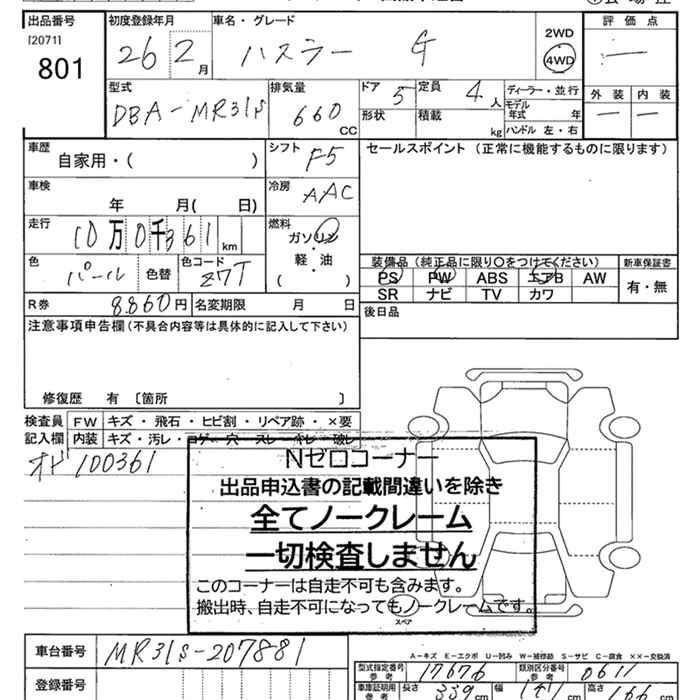 出品番号 初度登録年月 車名・グレード 評価点
[2071]
801 26 2月 ハスラー G 2WD 4WD —
型式 排気量 ドア 定員 ディーラー・並行 外装 内装
DBA-MR31S 660CC 5 4人 モデル年式 年 — —
形状 積載 kg ハンドル 左・右
車歴 シフト セールスポイント(正常に機能するものに限ります)
自家用・( ) F5
車検 冷房
年 月( 日) AAC
走行 燃料
10万0千361km ガソリン
軽・油
( )
色 色コード 装備品(純正品に限り〇をつけてください) 新車保証書
パール 色替 Z7T PS PW ABS エアB AW 有・無
SR ナビ TV カワ
R券 8860円 名変期限 月 日 後日品
注意事項申告欄(不具合内容等は具体的に記入して下さい)
修復歴 有〔箇所 〕
検査員 FW キズ・飛石・ヒビ割・リペア跡・×要
記入欄 内装 キズ・汚レ・コゲ・穴・スレ・キレ・破レ
オド100361
Nゼロコーナー
出品申込書の記載間違いを除き
全てノークレーム
一切検査しません
このコーナーは自走不可も含みます。
搬出時、自走不可になってもノークレームです。
スペア
A-キズ E-エクボ U-凹み W-補修跡 S-サビ C-腐食 ××-交換済
車台番号 MR31S-207881
型式指定番号 参考 17676 類別区分番号 参考 0611
登録番号 車庫証明用 参考 長さ 339cm 幅 cm 高さ cm